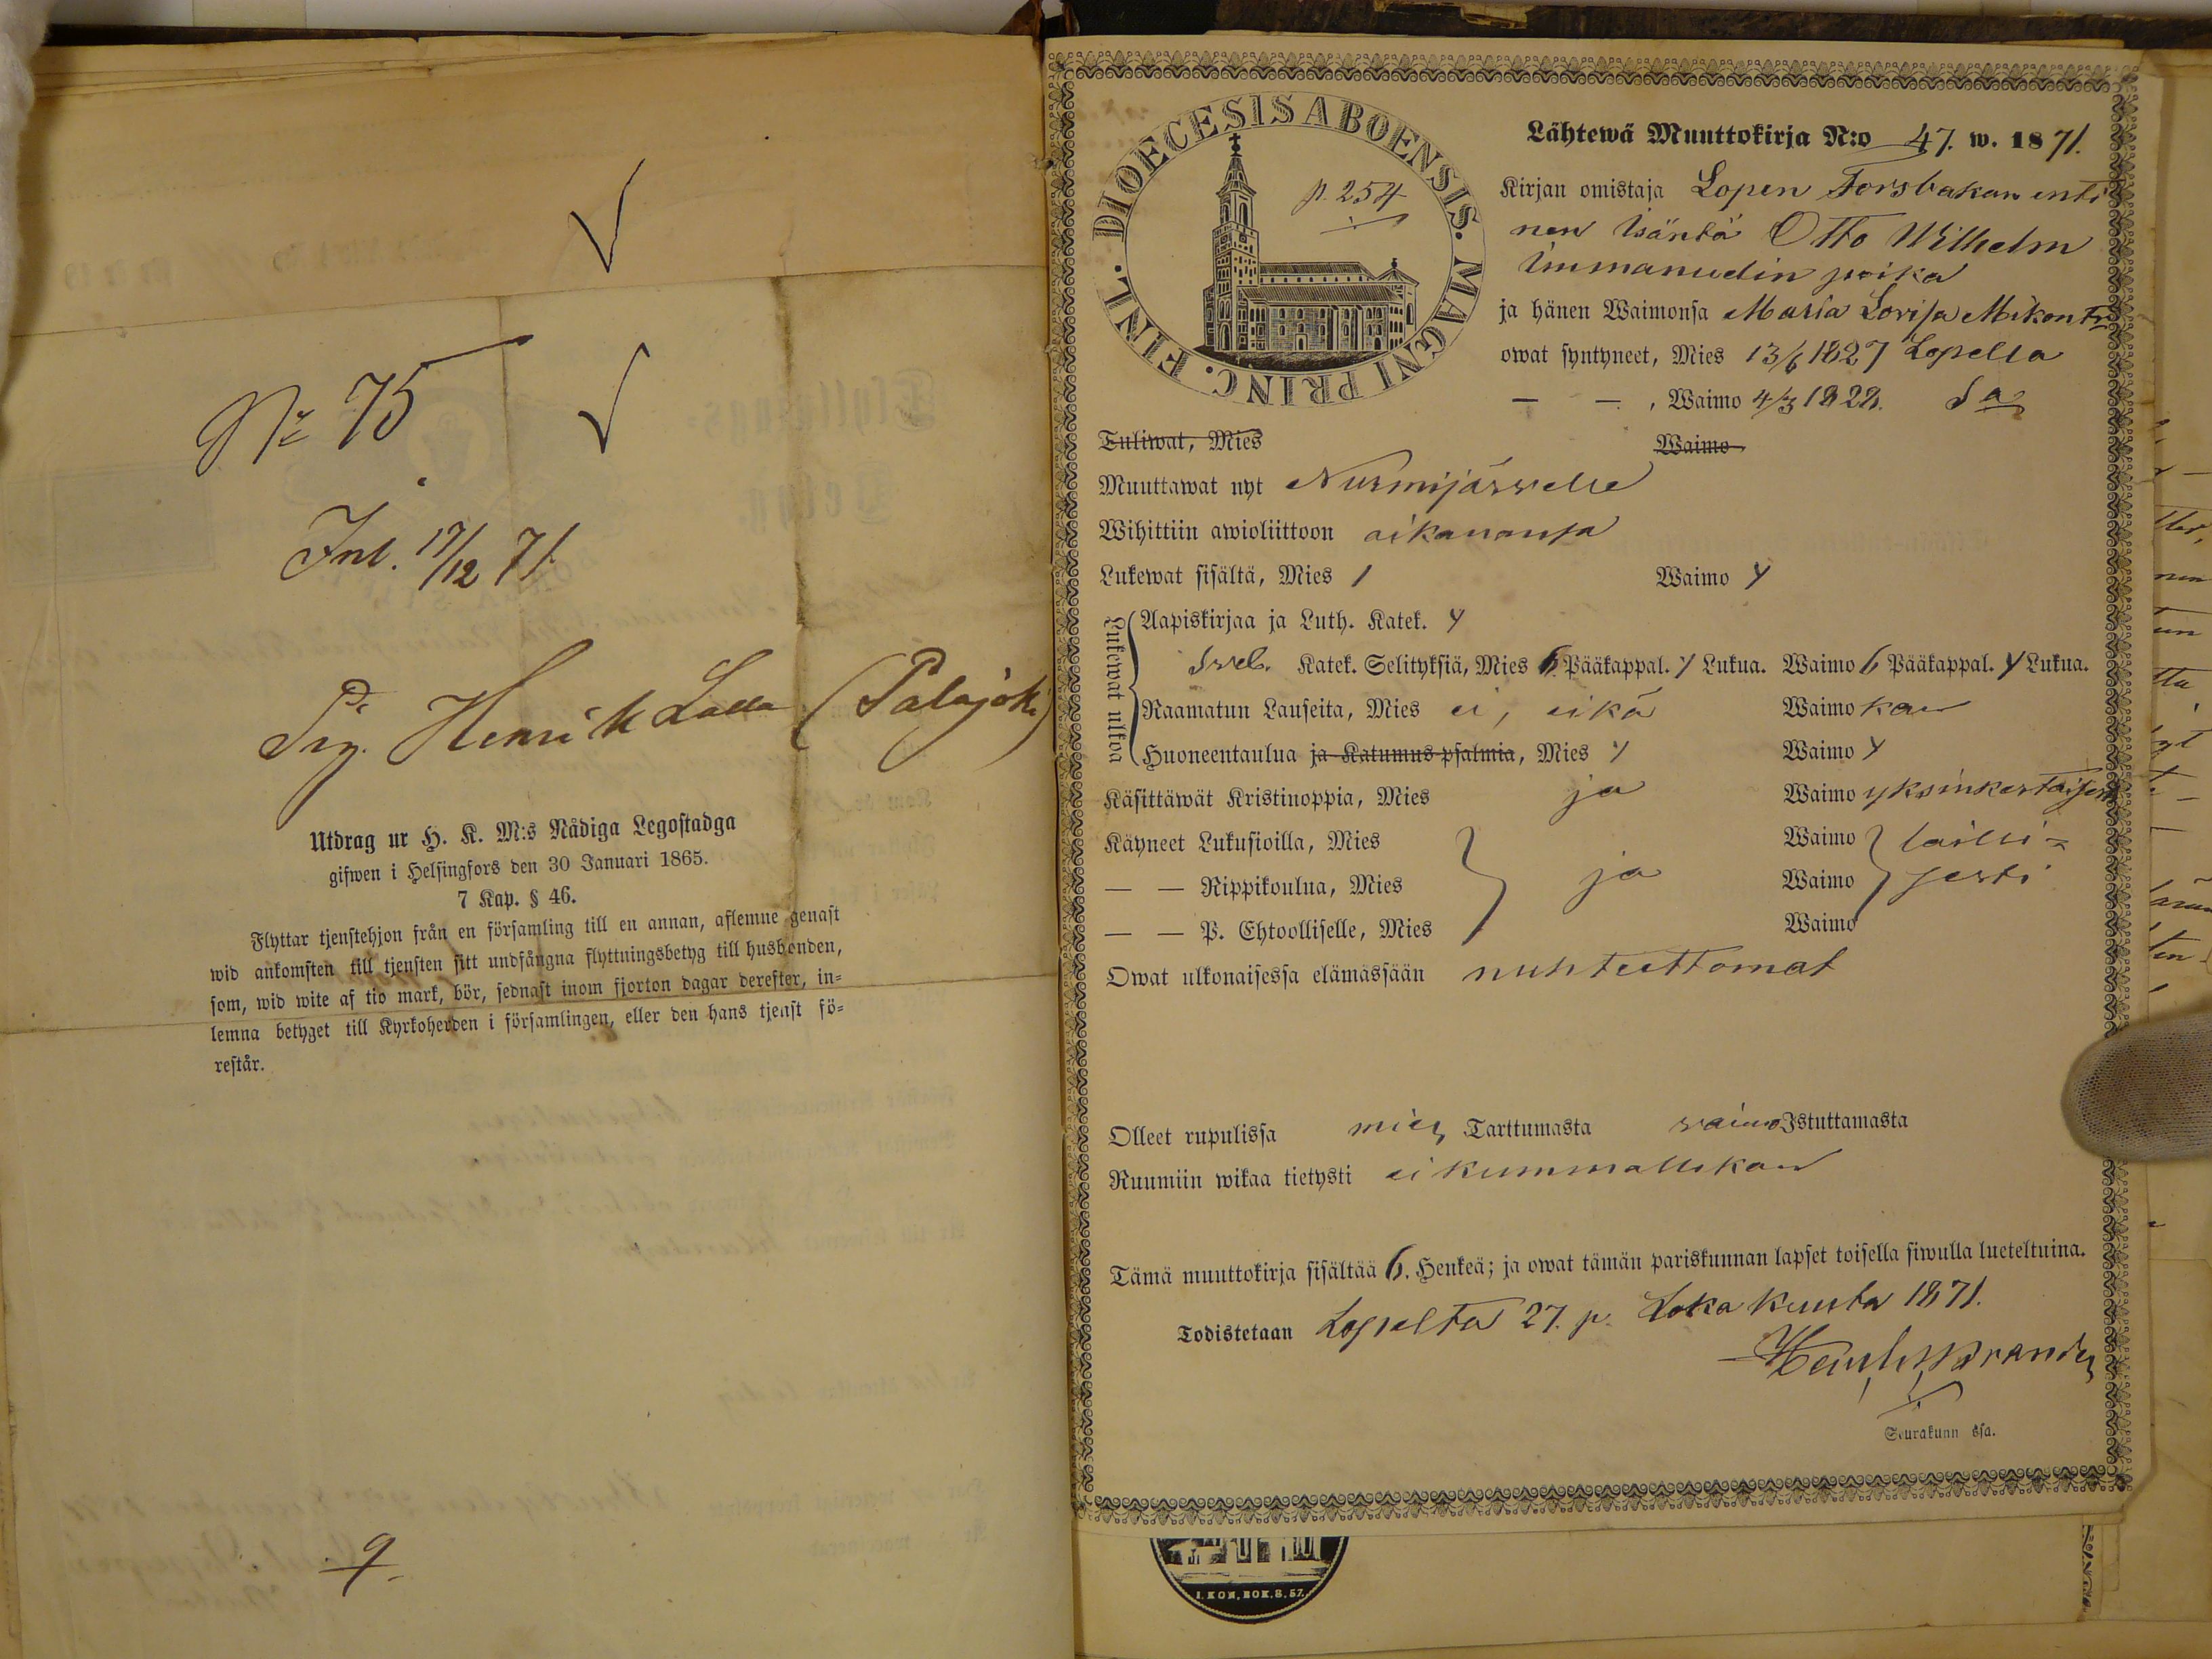 No 75
Inl. 17/12 71
Pig. Henrik Lalla (Palojoki)
Utdrag ur H. K. M:s Nådiga Legostadga
gifwen i Helsingfors den 30 Januari 1865.
7 Kap. § 46.
Flyttar tjenstehjon från en församling till en annan, aflemne genast
wid ankomsten till tjensten sitt undfångna flyttningsbetyg till husbonden,
som, wid wite af tio mark, bör, sednast inom fjorton dagar derefter, in-
lemna betyget till Kyrkoherden i församlingen, eller den hans tjenst fö-
restår.
9
DIOECESIS ABOENSIS. MAGNI PRINC. FINL.
p. 254
Lähtewä Muuttokirja N:o 47. w. 1871.
Kirjan omistaja Lopen Forsbakan enti
nen Isäntä Otto Wilhelm
Immanuelin poika
ja hänen Waimonsa Maria Lovisa Mikon tr
owat syntyneet, Mies 13/6 1827 Lopella
— — , Waimo 4/3 1828. Sa
Tuliwat, Mies Waimo
Muuttawat nyt Nurmijärwelle
Wihittiin awioliittoon aikanansa
Lukewat sisältä, Mies 1 Waimo Y
Lukewat ulkoa
Aapiskirjaa ja Luth. Katek. Y
Sveb. Katek. Selityksiä, Mies 6 Pääkappal. Y Lukua. Waimo 6 Pääkappal. Y Lukua.
Raamatun Lauseita, Mies ei, eikä Waimo kan
Huoneentaulua ja Katumus-psalmia, Mies Y Waimo Y
Käsittäwät Kristinoppia, Mies ja Waimo yksinkertaisesti
Käyneet Lukusioilla, Mies Waimo
— — Rippikoulua, Mies ja Waimo
— — P. Ehtoolliselle, Mies Waimo
lailli-
sesti
Owat ulkonaisessa elämässään nuhteettomat
Olleet rupulissa mies Tarttumasta waimo Istuttamasta
Ruumiin wikaa tietysti ei kummallakan
Tämä muuttokirja sisältää 6. Henkeä; ja owat tämän pariskunnan lapset toisella siwulla lueteltuina.
Todistetaan Lopelta 27. p. Lokakuuta 1871.
Seurakunn ssa.
1. KON. BOK. 8. 57.